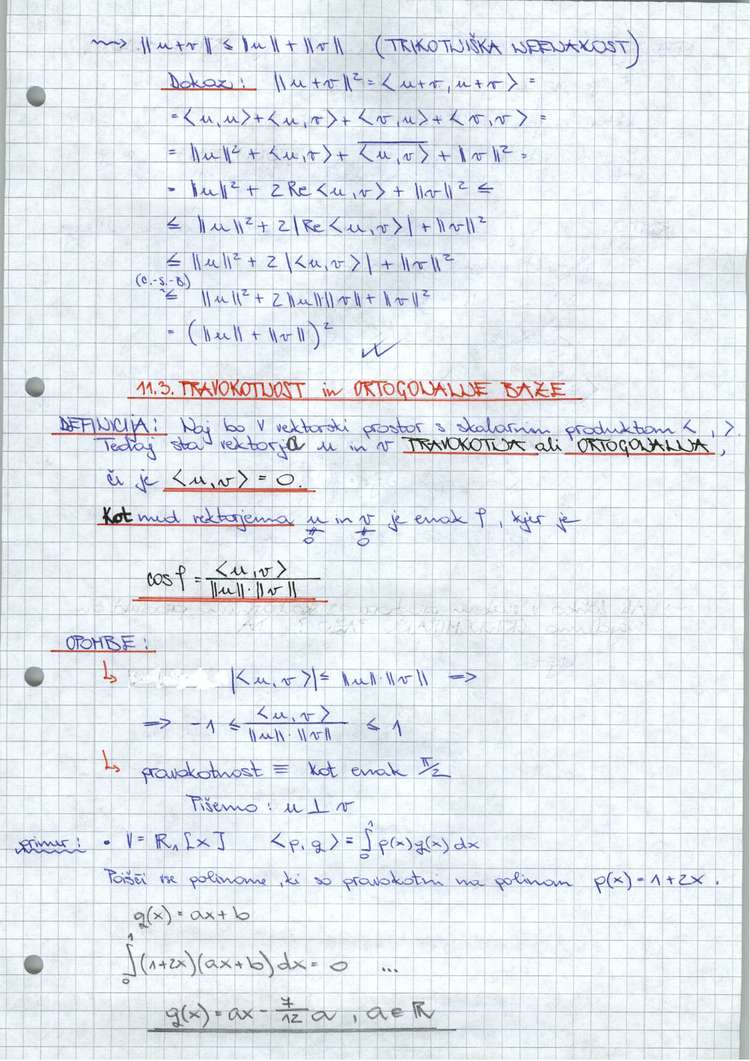 ⟿ ‖u+v‖ ≤ ‖u‖ + ‖v‖ (TRIKOTNIŠKA NEENAKOST)
Dokaz: ‖u+v‖² = <u+v, u+v> =
= <u,u> + <u,v> + <v,u> + <v,v> =
= ‖u‖² + <u,v> + \overline{<u,v>} + ‖v‖² =
= ‖u‖² + 2 Re <u,v> + ‖v‖² ≤
≤ ‖u‖² + 2 |Re <u,v>| + ‖v‖²
≤ ‖u‖² + 2 |<u,v>| + ‖v‖²
(C.-S.-B.) ≤ ‖u‖² + 2‖u‖‖v‖ + ‖v‖²
= (‖u‖ + ‖v‖)²
11.3. PRAVOKOTNOST in ORTOGONALNE BAZE
DEFINICIJA: Naj bo V vektorski prostor s skalarnim produktom < , >.
Tedaj sta vektorja u in v PRAVOKOTNA ali ORTOGONALNA,
če je <u,v> = 0.
Kot med vektorjema u≠0 in v≠0 je enak φ, kjer je
cos φ = <u,v> / ‖u‖·‖v‖
OPOMBE:
↳ |<u,v>| ≤ ‖u‖·‖v‖ ⇒
⇒ -1 ≤ <u,v> / ‖u‖·‖v‖ ≤ 1
↳ pravokotnost ≡ kot enak π/2
Pišemo: u ⊥ v
primer: • V = ℝ₁[x] <p,q> = ∫₀¹ p(x)q(x) dx
Poišči vse polinome, ki so pravokotni na polinom p(x) = 1+2x.
q(x) = ax+b
∫₀¹ (1+2x)(ax+b) dx = 0 ...
q(x) = ax - 7/12 a, a ∈ ℝ